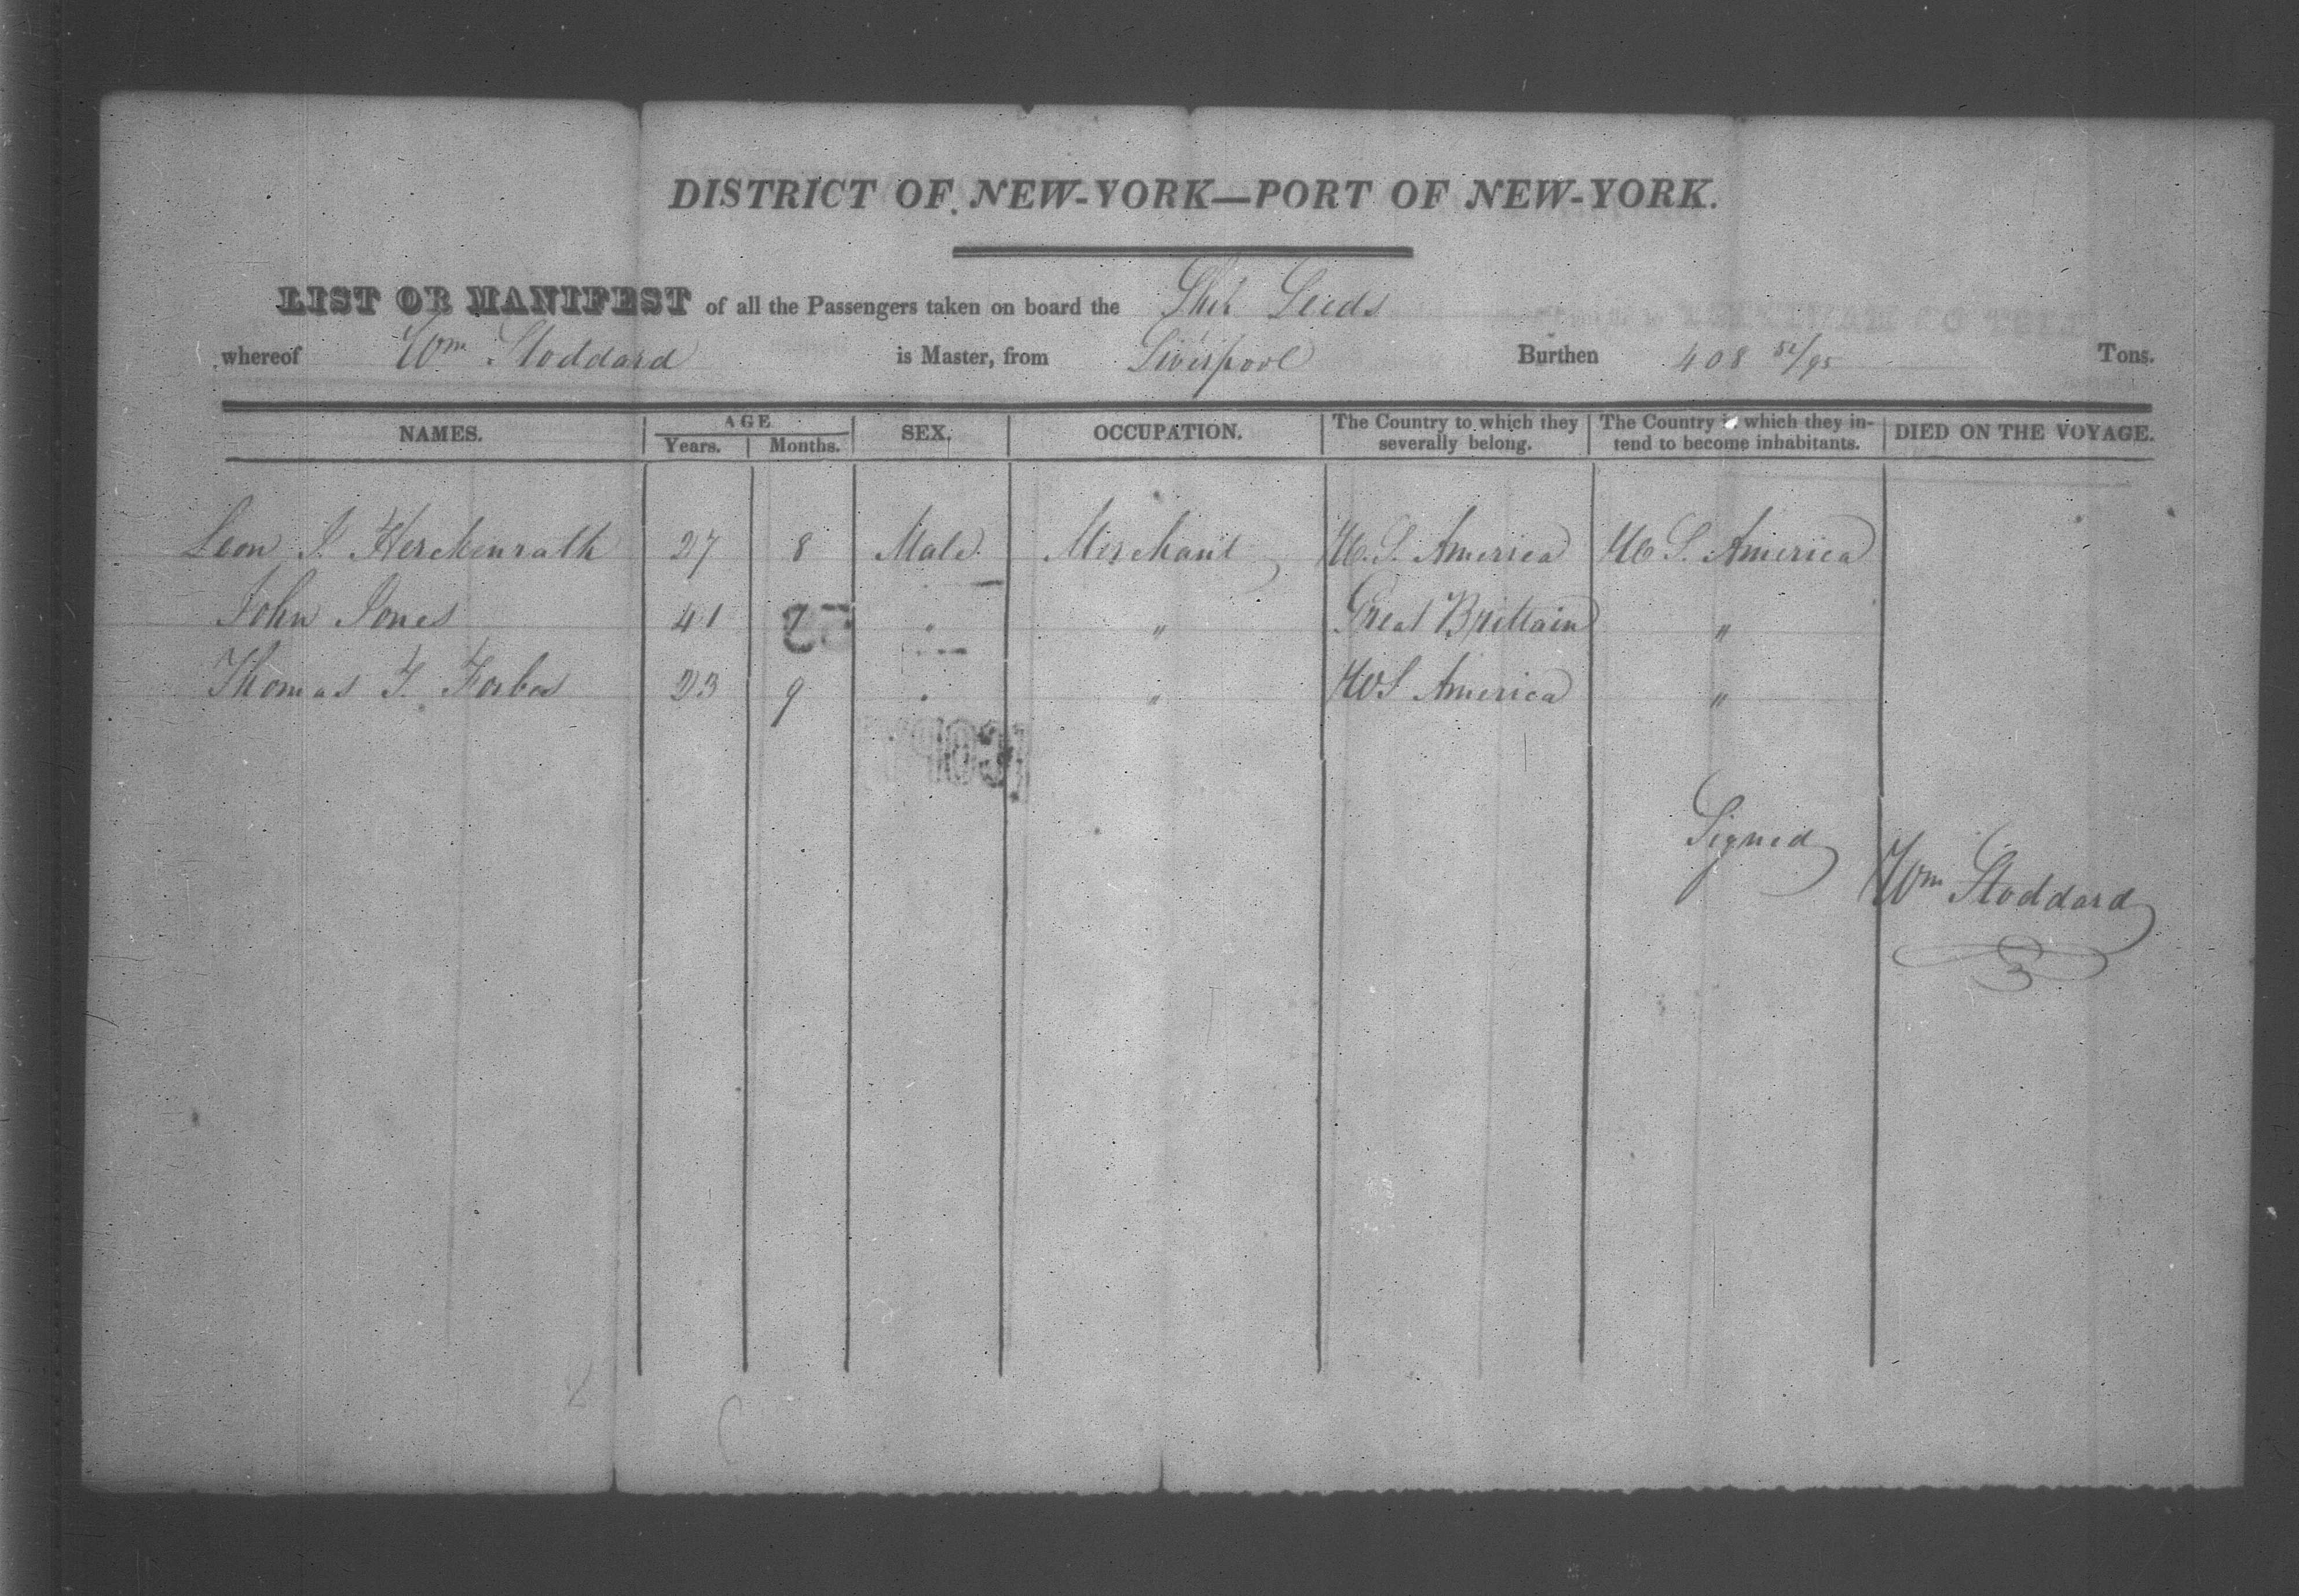 DISTRICT OF NEW-YORK—PORT OF NEW-YORK.
LIST OR MANIFEST of all the Passengers taken on board the Ship Leeds
whereof Wm Stoddard is Master, from Liverpool Burthen 408 52/95 Tons.
NAMES. AGE Years. Months. SEX. OCCUPATION. The Country to which they severally belong. The Country in which they intend to become inhabitants. DIED ON THE VOYAGE.
Leon J. Herckenrath 27 8 Male Merchant U.S. America U.S. America
John Jones 41 7 " " Great Brittain "
Thomas F. Forbes 23 9 " " U S America "
Signed
Wm Stoddard